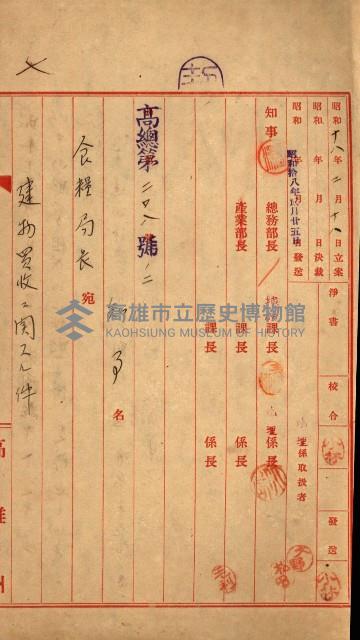 昭和十八年二月十八日立案
昭和　年　月　日決裁
昭和　年　月　日發送
昭和拾八年　月廿五日
淨書
校合
發送
係取扱者
知事
總務部長
產業部長
課長
課長
課長
係長
係長
係長
高總第二〇八號ノ二
知事名
食糧局長宛
建物買收ニ関スル件
高雄州
高雄市立歷史博物館
KAOHSIUNG MUSEUM OF HISTORY